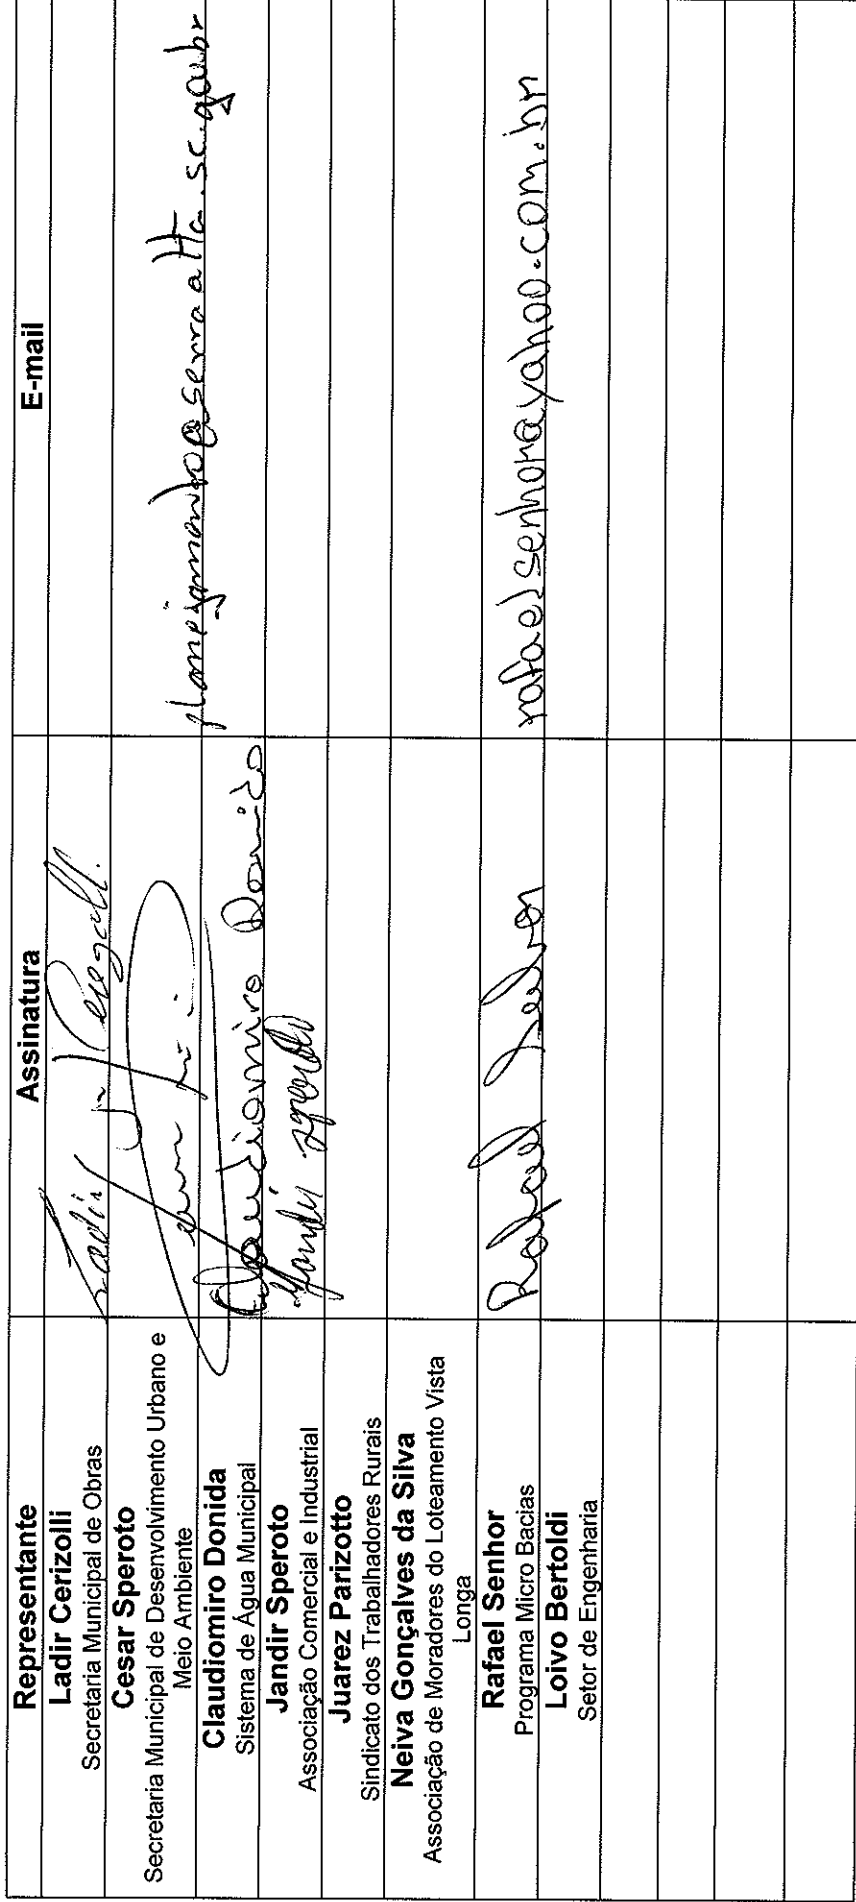 Representante Assinatura E-mail
Ladir Cerizolli
Secretaria Municipal de Obras
Ladir
Cesar Speroto
Secretaria Municipal de Desenvolvimento Urbano e
Meio Ambiente
@serraalta.sc.gov.br
Claudiomiro Donida
Sistema de Água Municipal
Claudiomiro Donida
Jandir Speroto
Associação Comercial e Industrial
Jandir Speroto
Juarez Parizotto
Sindicato dos Trabalhadores Rurais
Neiva Gonçalves da Silva
Associação de Moradores do Loteamento Vista
Longa
Rafael Senhor
Programa Micro Bacias
Rafael Senhor
rafaelsenhor@yahoo.com.br
Loivo Bertoldi
Setor de Engenharia